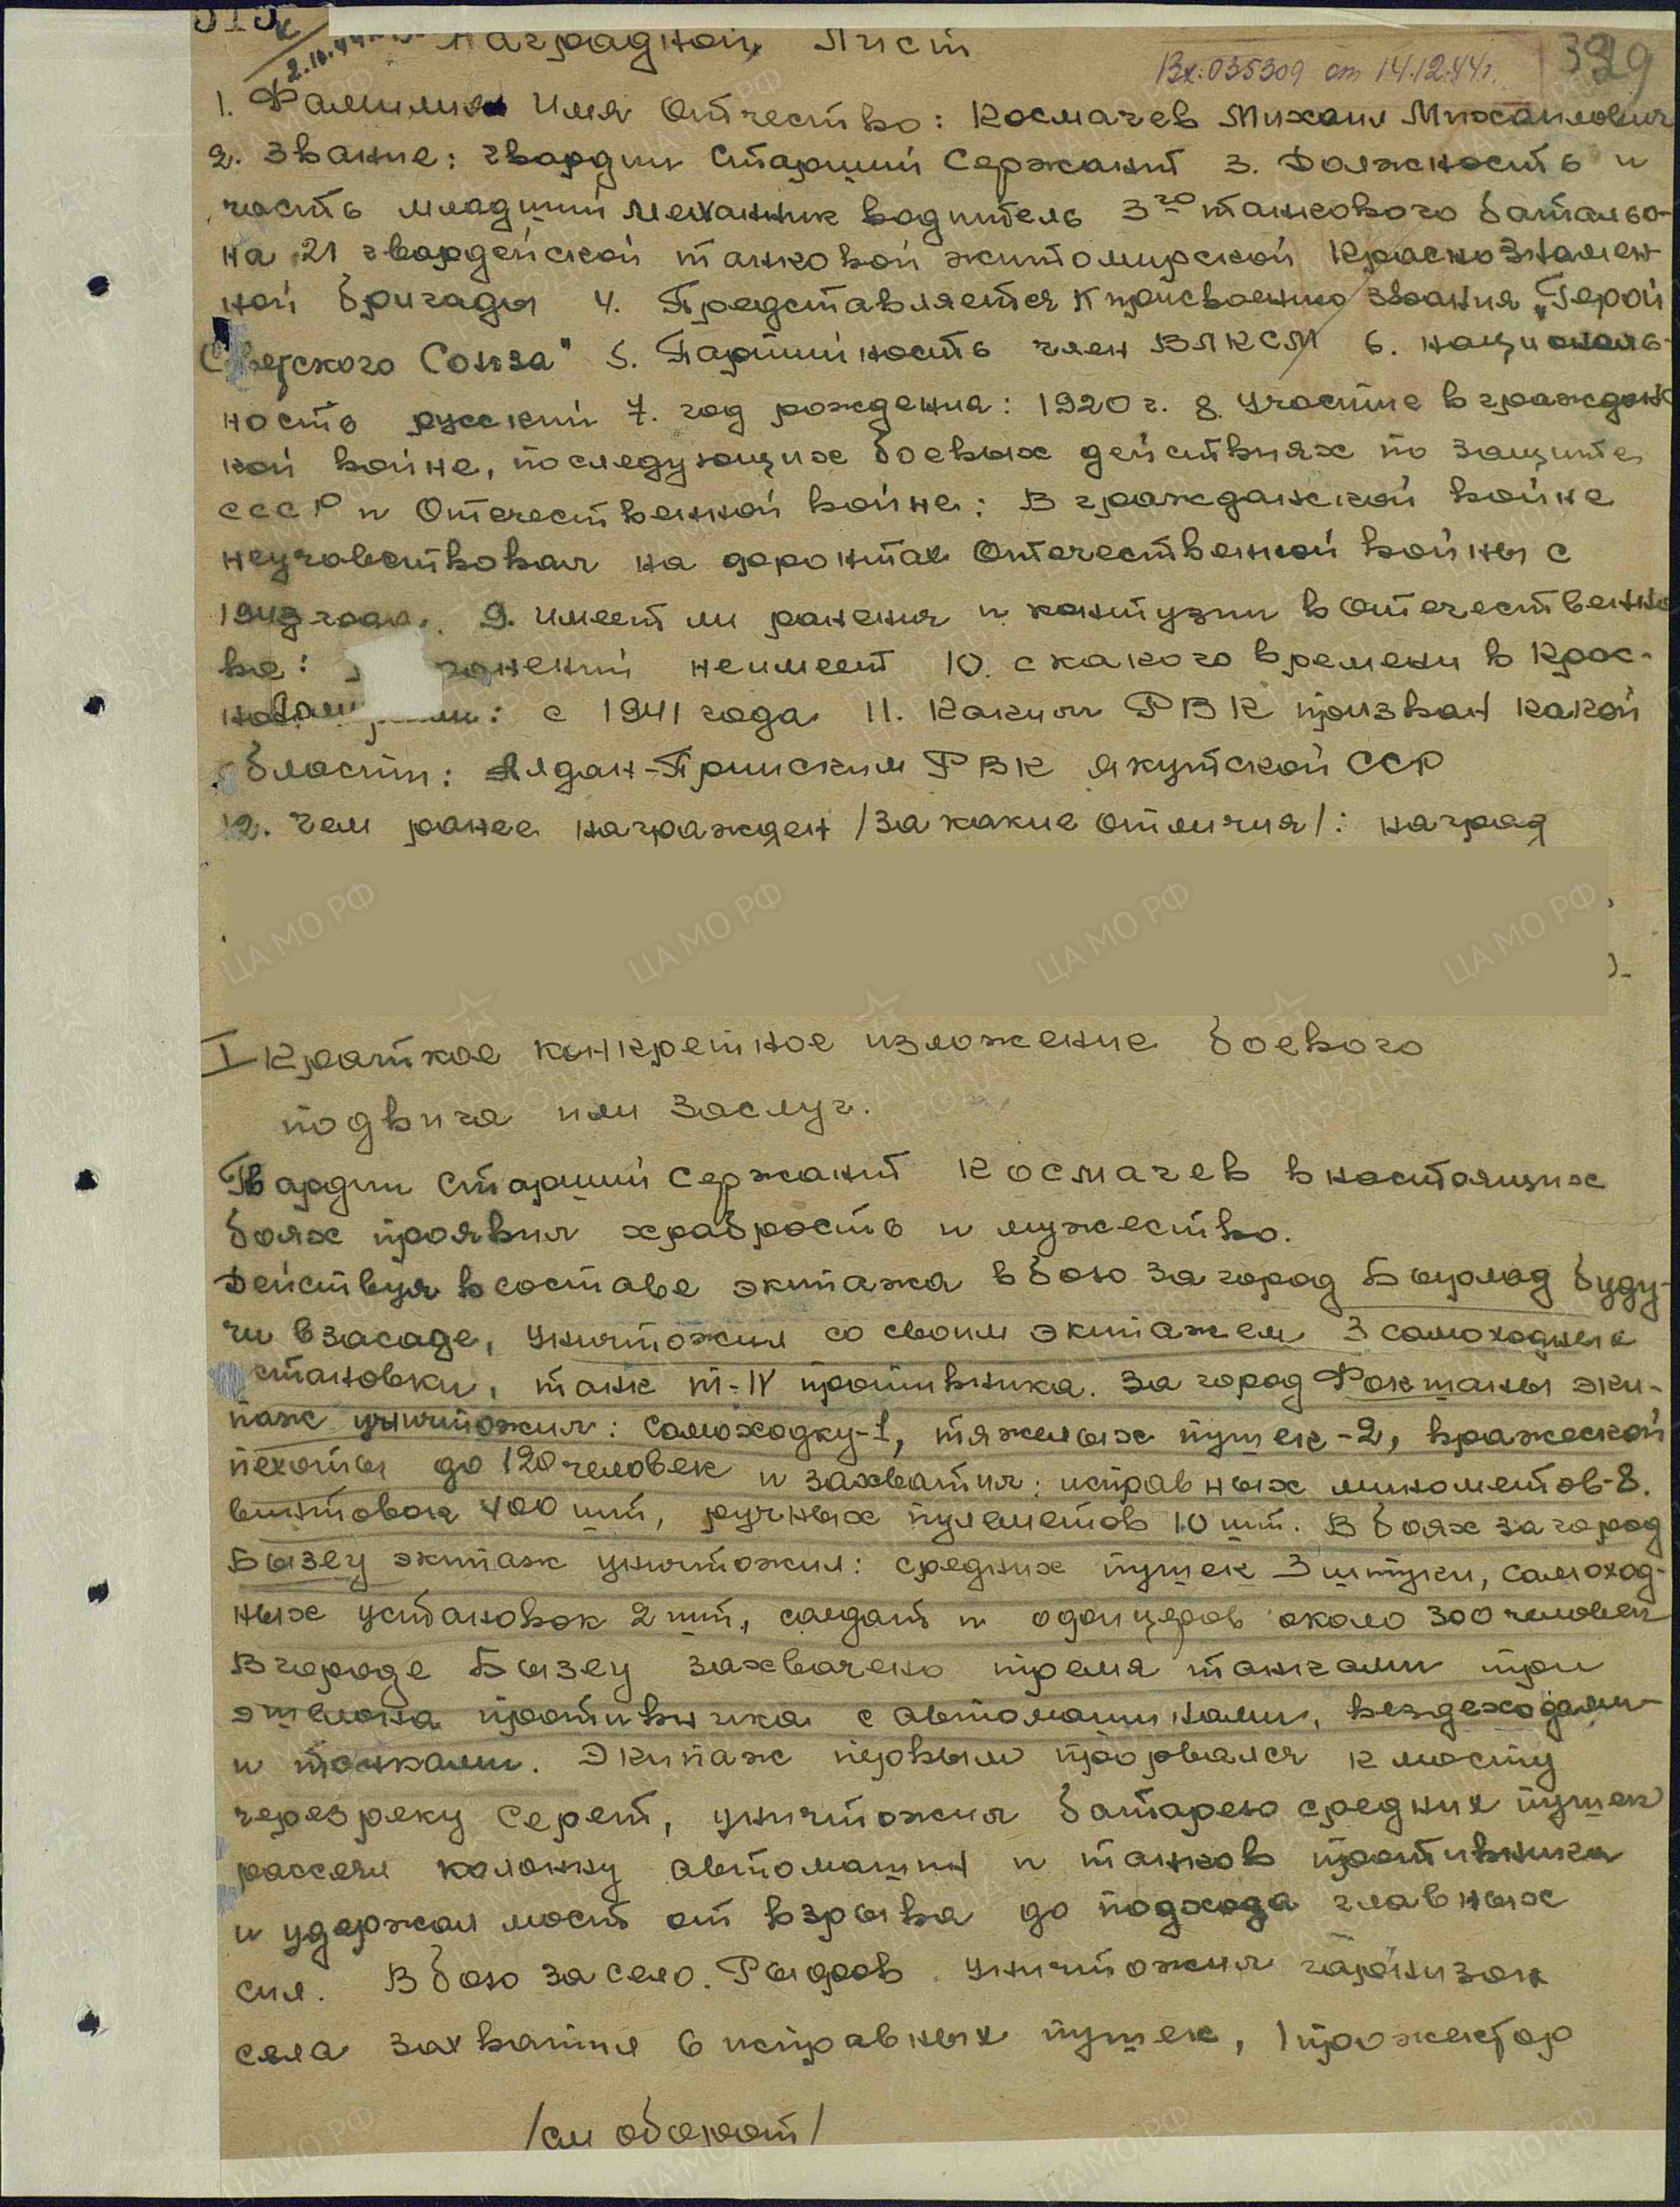 2.10.44
Наградной Лист
Вх: 035309 от 14.12.44г.
1. Фамилия Имя Отчество: Космачев Михаил Михайлович
2. Звание: гвардии Старший Сержант 3. Должность и
часть младший механик водитель 3го танкового баталио-
на 21 гвардейской танковой житомирской Краснознамен-
ной бригады 4. Представляется к присвоению звания „Герой
Советского Союза" 5. Партийность член ВЛКСМ 6. националь-
ность русский 7. год рождения: 1920 г. 8. участие в граждан
кой войне, последующих боевых действиях по защите
СССР и Отечественной войне: В гражданской войне
неучавствовал на фронтах Отечественной войны с
1943 года. 9. имеет ли ранения и контузии в отечественно
ве: ранений неимеет 10. с какого времени в Крас-
ной Армии: с 1941 года 11. Каким РВК призван какой
области: Алдан-Приискиим РВК якутской ССР
12. чем ранее награжден /за какие отличия/: наград
I Краткое конкретное изложение боевого
подвига или заслуг.
Гвардии Старший Сержант Космачев в настоящих
боях проявил храбрость и мужество.
Действуя в составе экипажа в бою за город Бырлад буду-
чи в засаде, уничтожил со своим экипажем 3 самоходные
установки, танк т-IV противника. За город Фокшаны эки-
паж уничтожил: самоходку-1, тяжелых пушек-2, вражеской
пехоты до 120 человек и захватил: исправных минометов-8.
винтовок 400 шт, ручных пулеметов 10 шт. В боях за город
Бызеу экипаж уничтожил: средних пушек 3 штуки, самоход-
ных установок 2 шт., солдат и офицеров около 300 человек
В городе Бызеу захвачено тремя танками три
эшелона противника с автомашинами, вездеходами
и танками. Экипаж первым прорвался к мосту
через реку Серет, уничтожил батарею средних пушек
рассеял колонну автомашин и танков противника
и удержал мост от взрыва до подхода главных
сил. В бою за село. Рыфов уничтожил гарнизон
села захватил 6 исправных пушек, 1 прожектор
/см оборот/
ЦАМО РФ